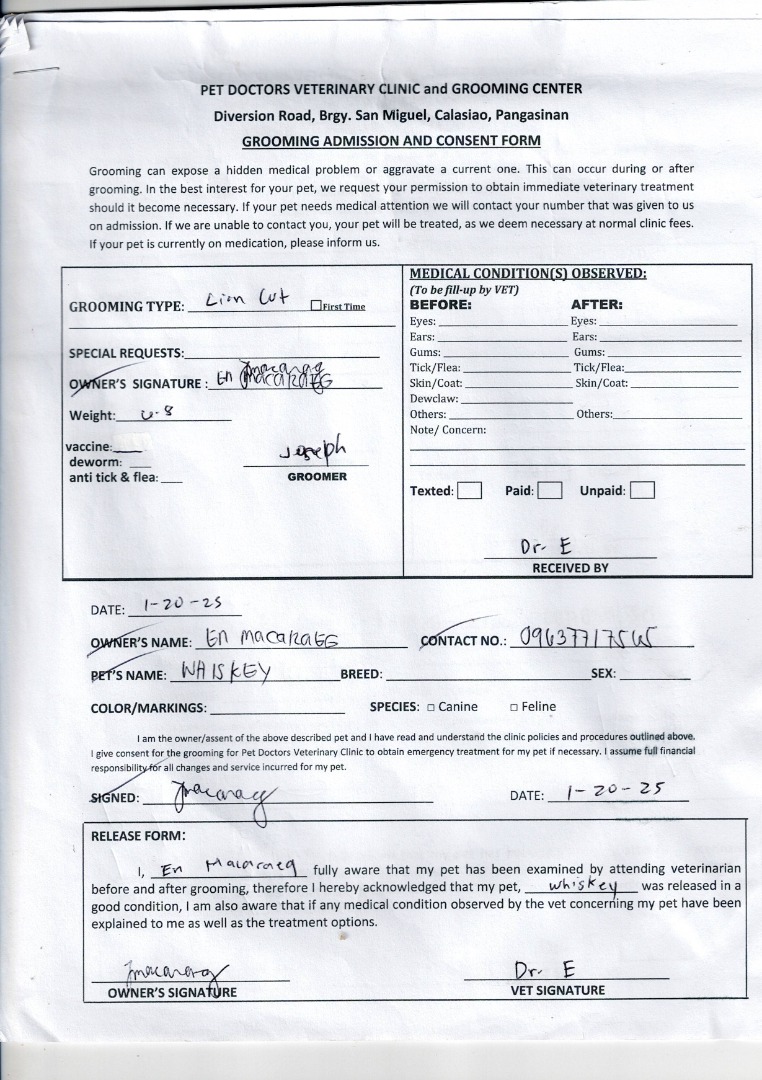 PET DOCTORS VETERINARY CLINIC and GROOMING CENTER
Diversion Road, Brgy. San Miguel, Calasiao, Pangasinan
GROOMING ADMISSION AND CONSENT FORM
Grooming can expose a hidden medical problem or aggravate a current one. This can occur during or after
grooming. In the best interest for your pet, we request your permission to obtain immediate veterinary treatment
should it become necessary. If your pet needs medical attention we will contact your number that was given to us
on admission. If we are unable to contact you, your pet will be treated, as we deem necessary at normal clinic fees.
If your pet is currently on medication, please inform us.
GROOMING TYPE: Lion Cut First Time
SPECIAL REQUESTS:
OWNER'S SIGNATURE: En MACARAEG
Weight:
vaccine:
deworm:
anti tick & flea:
Joseph
GROOMER
MEDICAL CONDITION(S) OBSERVED:
(To be fill-up by VET)
BEFORE: AFTER:
Eyes: Eyes:
Ears: Ears:
Gums: Gums:
Tick/Flea: Tick/Flea:
Skin/Coat: Skin/Coat:
Dewclaw:
Others: Others:
Note/ Concern:
Texted: Paid: Unpaid:
Dr. E
RECEIVED BY
DATE: 1-20-25
OWNER'S NAME: En MACARAEG CONTACT NO.:
PET'S NAME: WHISKEY BREED: SEX:
COLOR/MARKINGS: SPECIES: Canine Feline
I am the owner/assent of the above described pet and I have read and understand the clinic policies and procedures outlined above.
I give consent for the grooming for Pet Doctors Veterinary Clinic to obtain emergency treatment for my pet if necessary. I assume full financial
responsibility for all changes and service incurred for my pet.
SIGNED: Jmacaraeg DATE: 1-20-25
RELEASE FORM:
I, En Macaraeg fully aware that my pet has been examined by attending veterinarian
before and after grooming, therefore I hereby acknowledged that my pet, whiskey was released in a
good condition, I am also aware that if any medical condition observed by the vet concerning my pet have been
explained to me as well as the treatment options.
Jmacaraeg Dr. E
OWNER'S SIGNATURE VET SIGNATURE